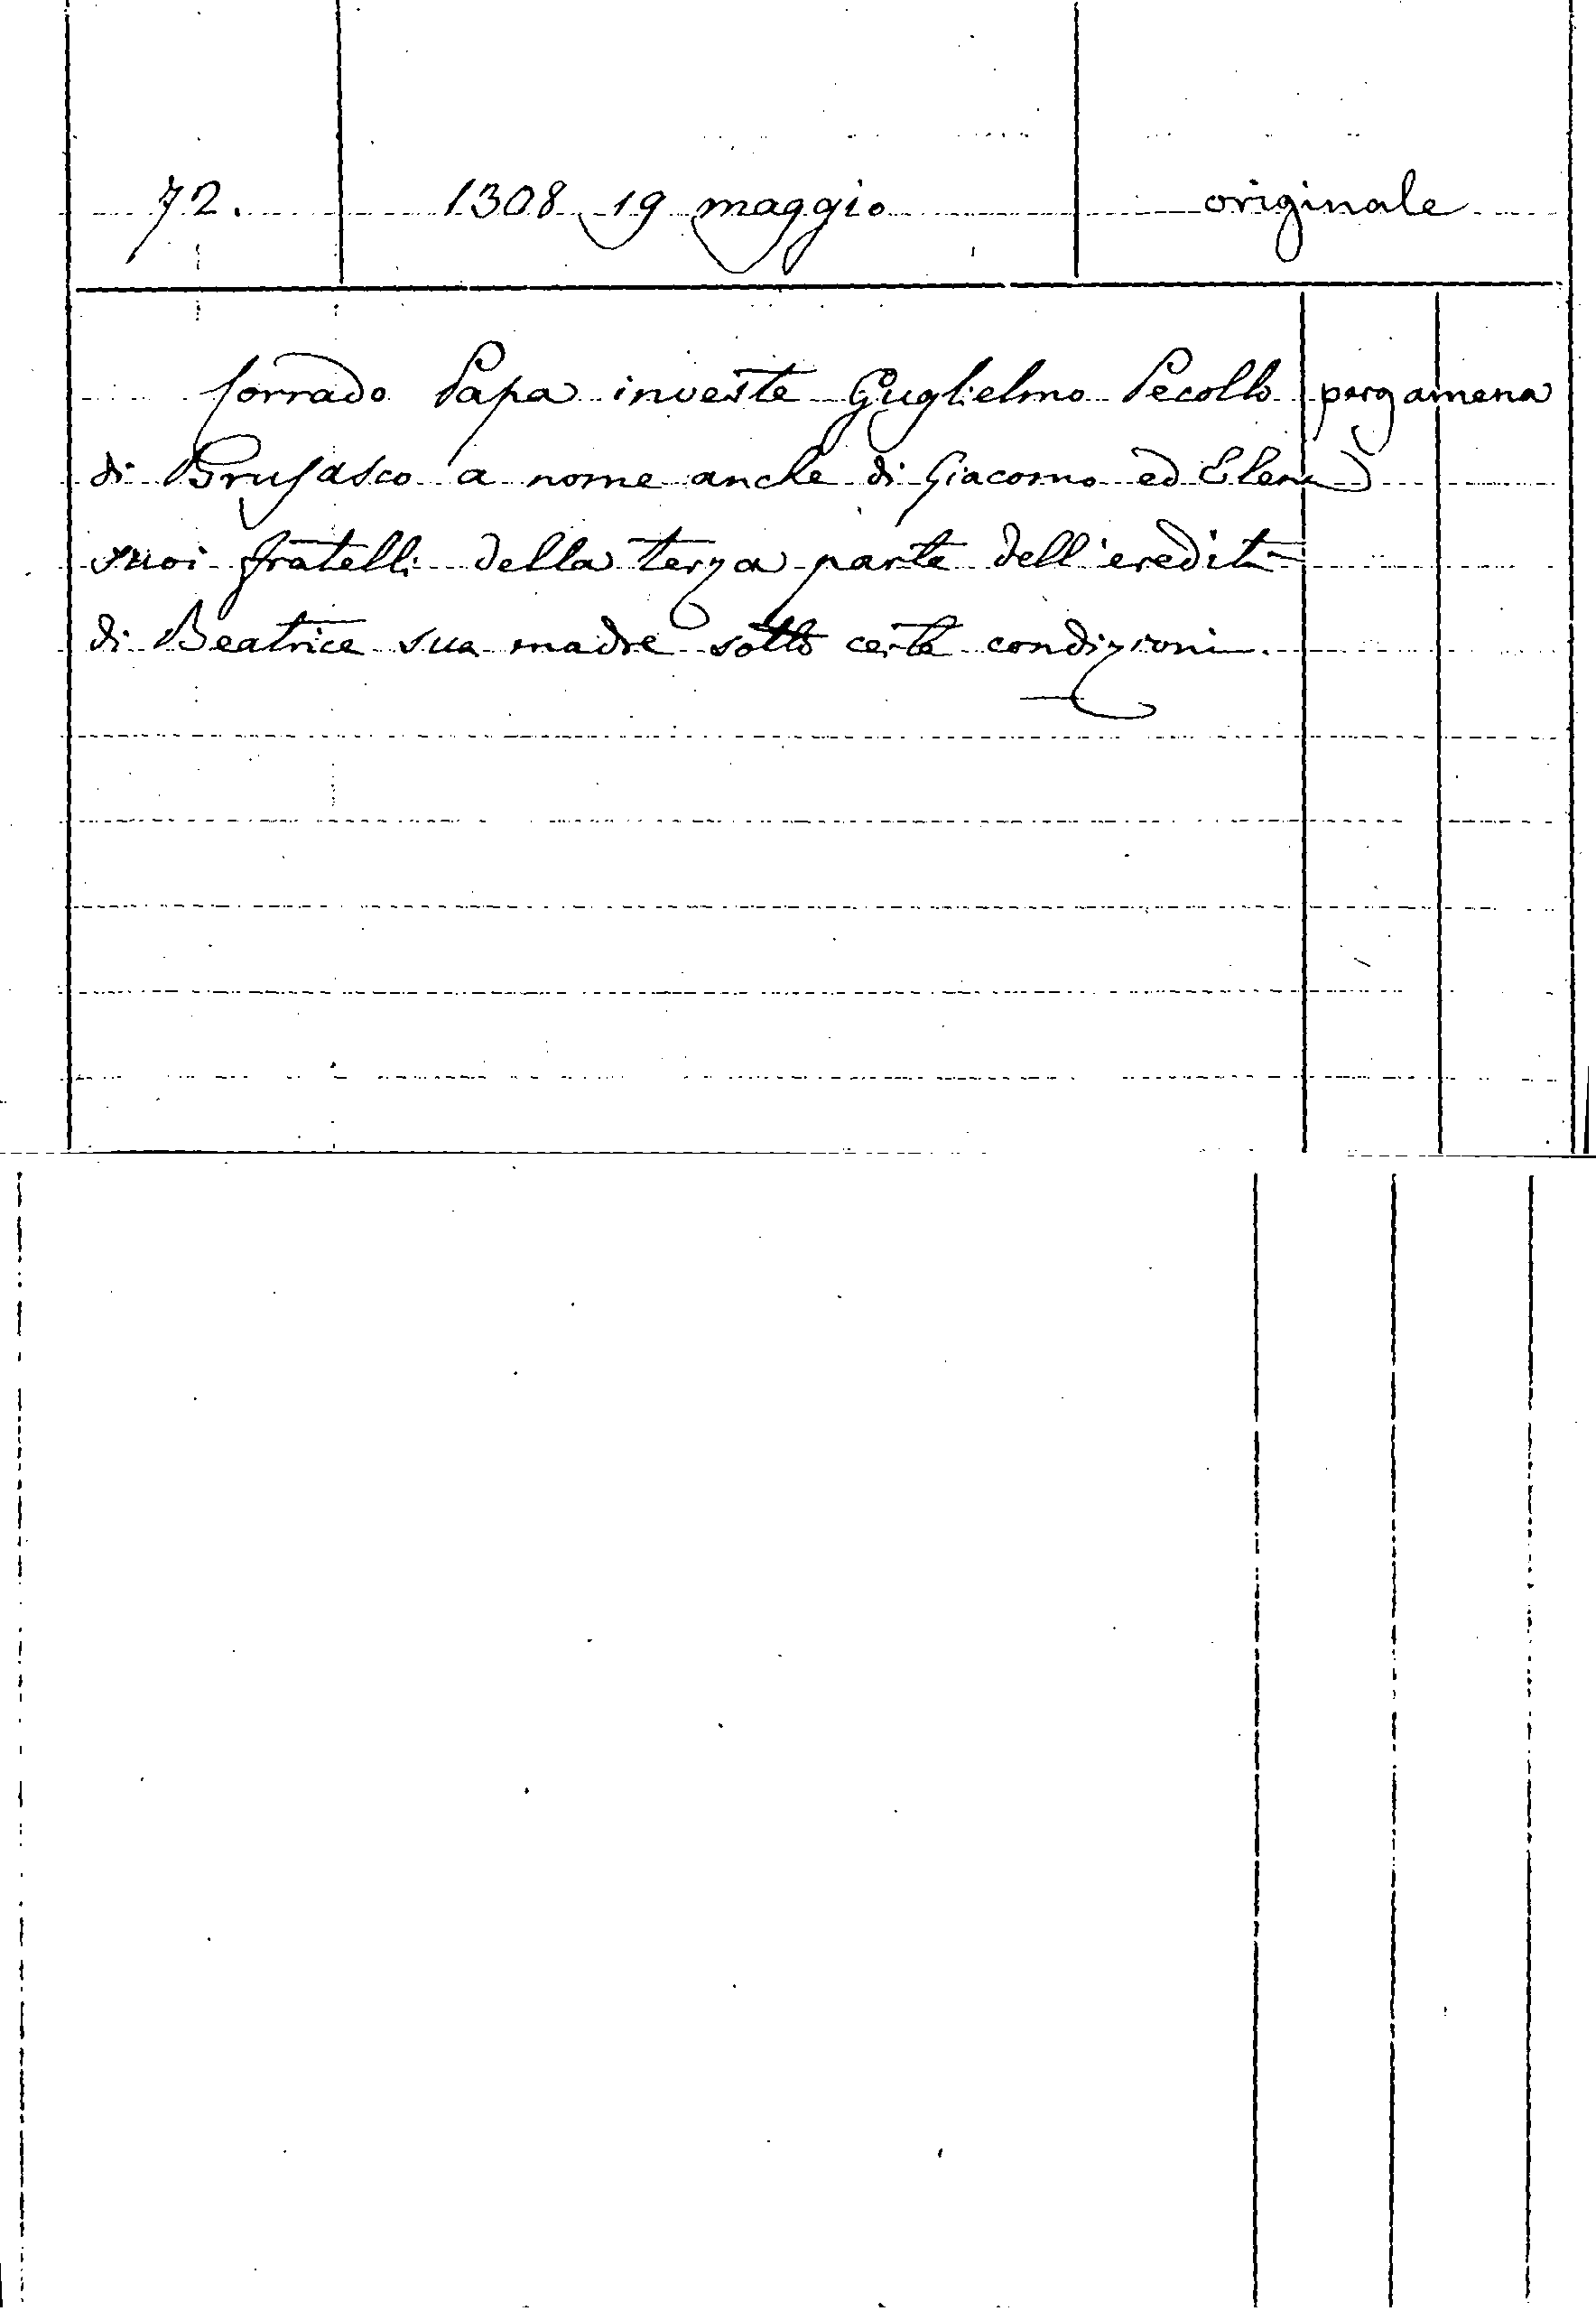 72. 1308 19 maggio originale
Corrado Papa investe Guglielmo Pecollo pergamena
di Brusasco a nome anche di Giacomo ed Elena
suoi fratelli della terza parte dell'eredità
di Beatrice sua madre sotto certe condizioni.